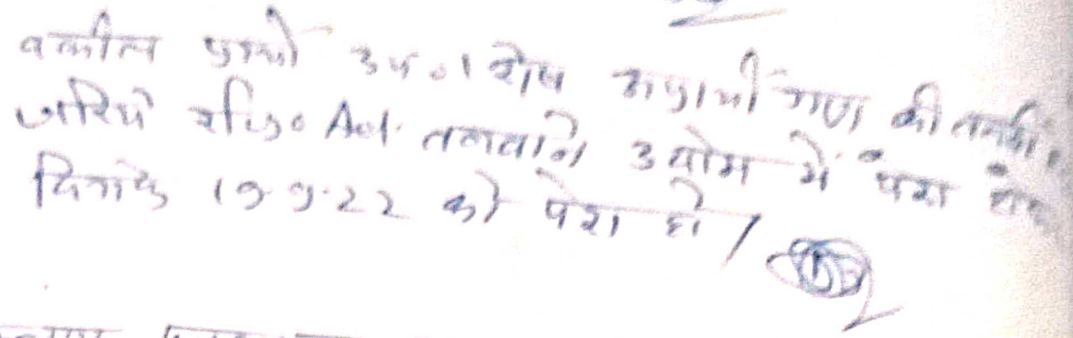 वकील प्रार्थी उप०। शेष अप्रार्थी गण की तलबी
जरिये रजि० Ad. तलवाने 3 योम में पेश हो
दिनांक 19.9.22 को पेश हो /